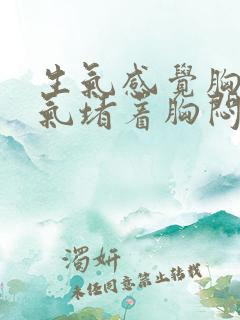 生氣感覺胸
氣堵着胸悶
濁妍
未经同意禁止转载